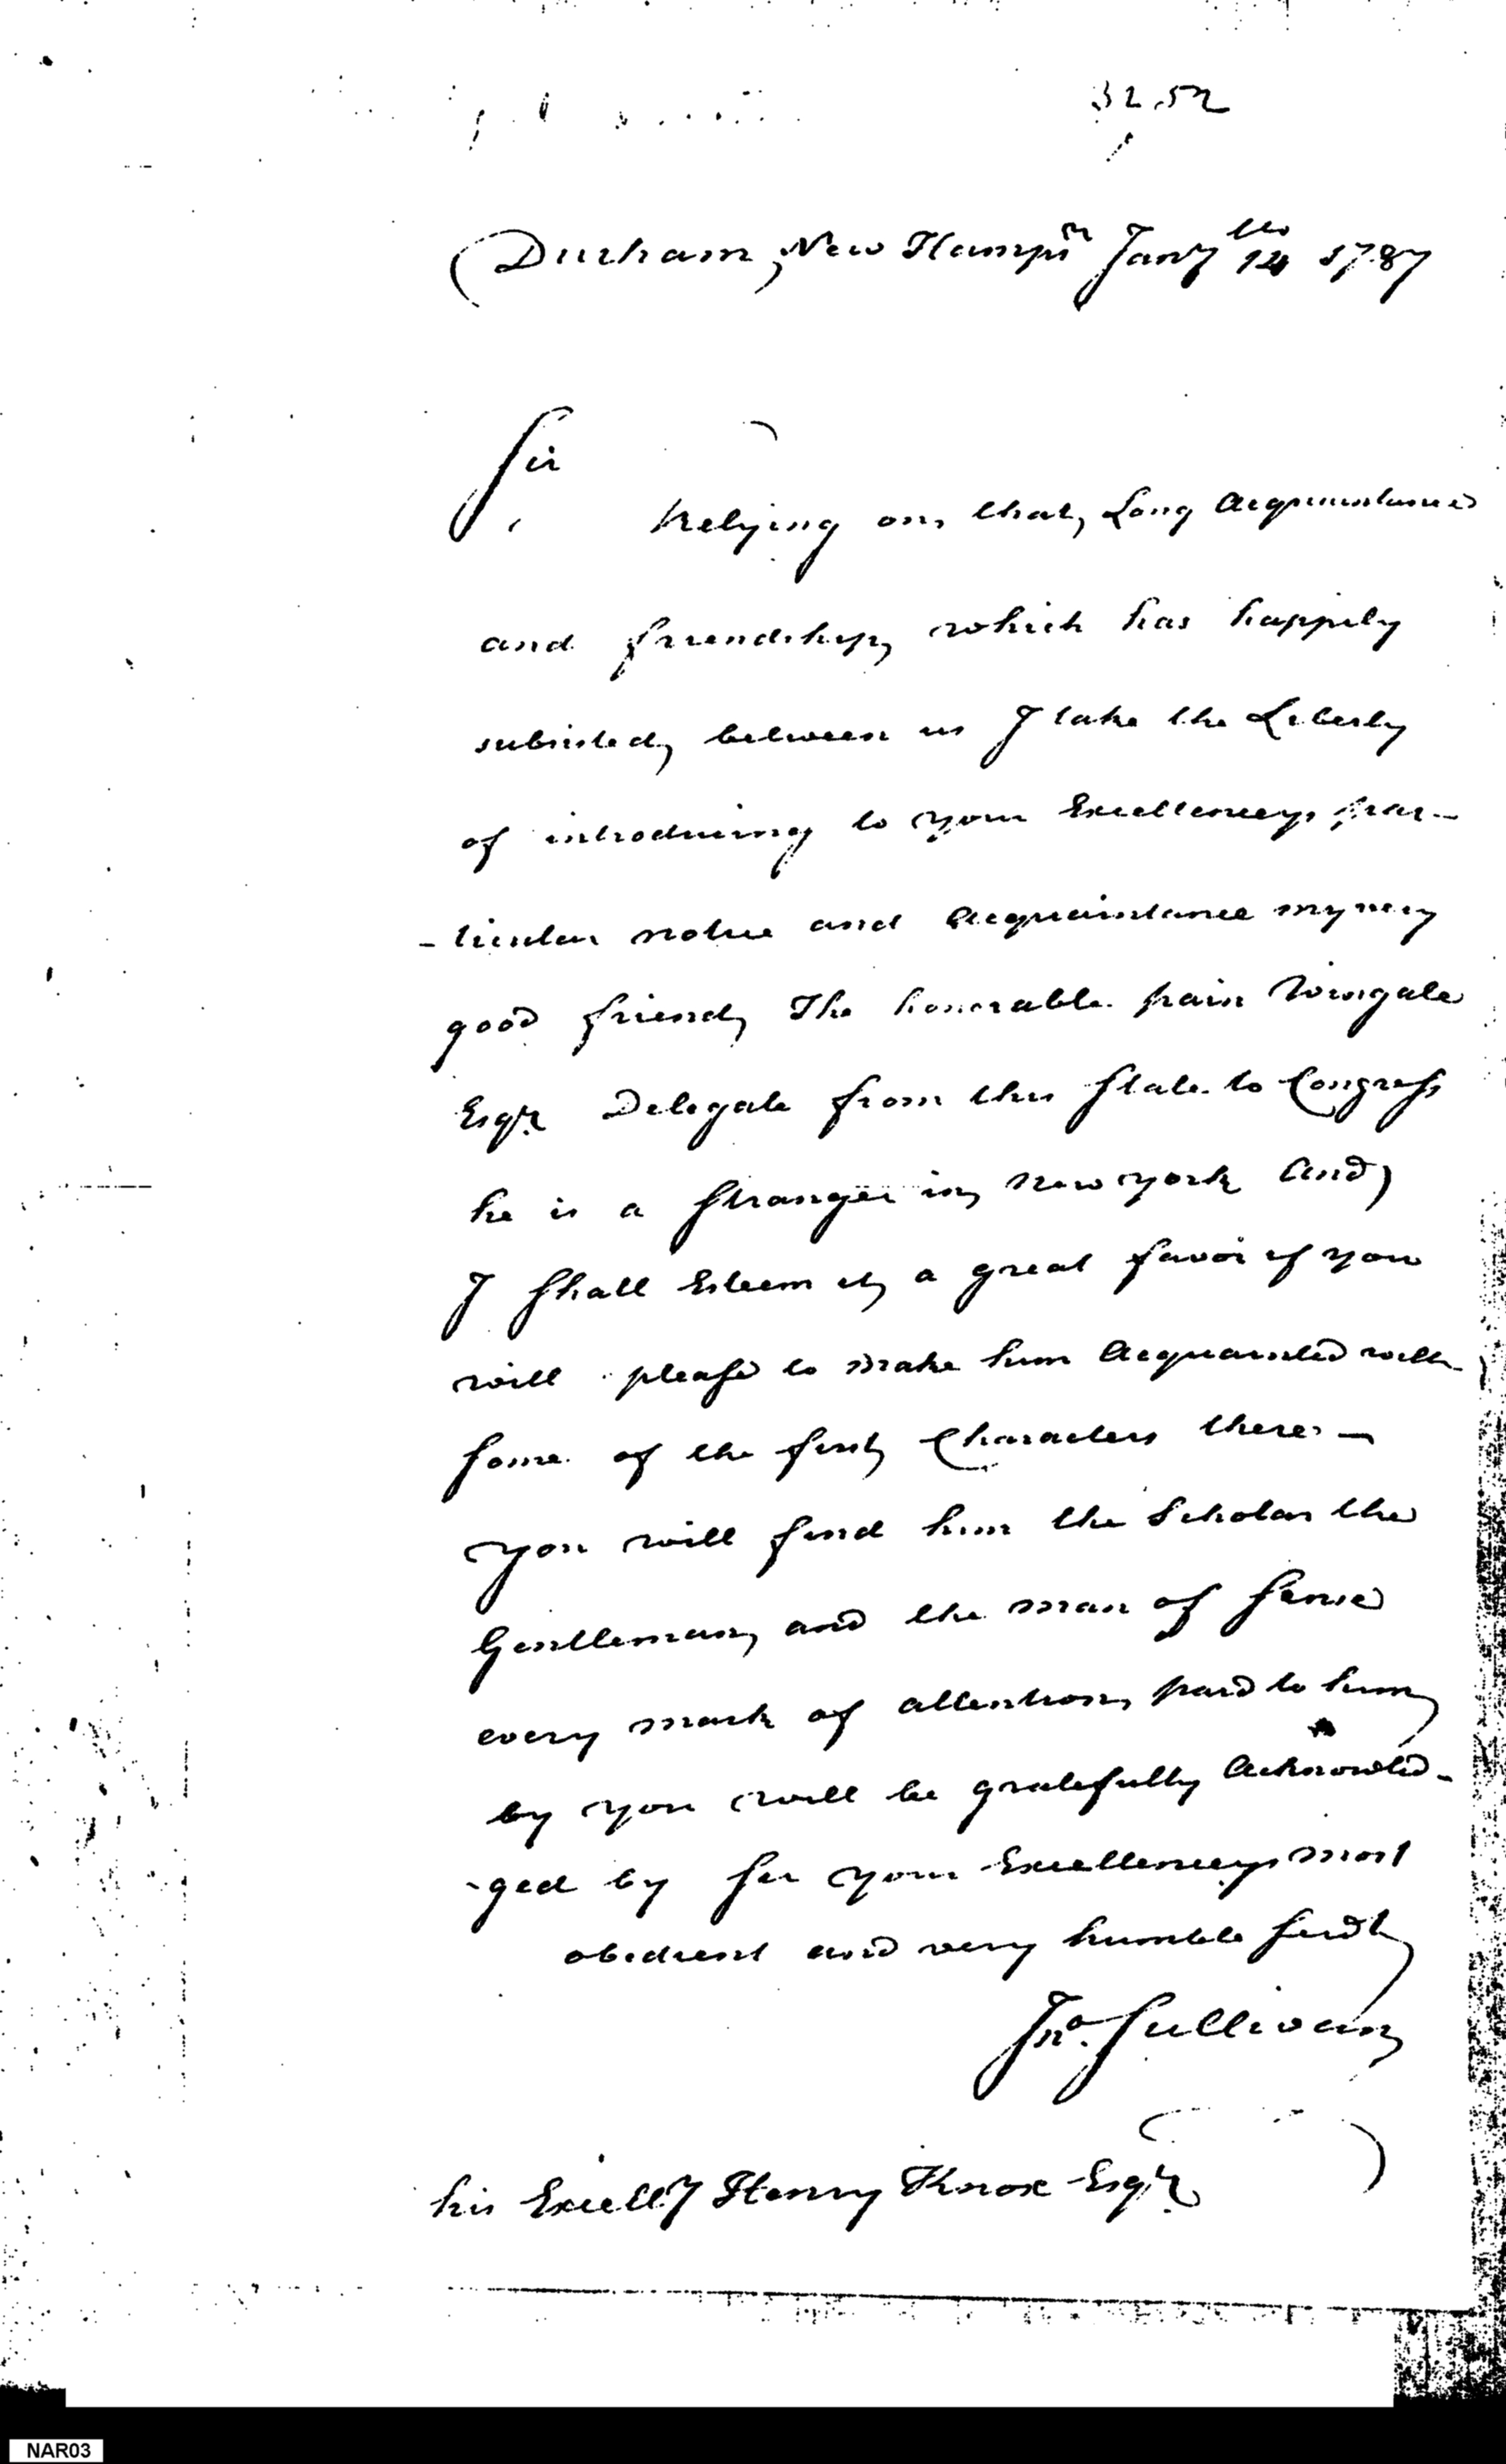 3252
Durham New Hampr Jany 14th 1787
Sir
Relying on that Long Acquaintance
and friendship which has happily
subsisted between us I take the Liberty
of introducing to your Excellencys par-
-ticular notice and Acquaintance my very
good friend The honorable pain Wingate
Esqr Delegate from this State to Congress
he is a Stranger in New york and
I Shall Esteem it a great favor if you
will please to make him Acquainted with
Some of the first Characters there -
you will find him the Scholar the
Gentleman and the man of Sense
every mark of attention paid to him
by you will be gratefully Acknowled-
-ged by Sir your Excellencys most
obedient and very humble Servt
Jno. Sullivan
his Excelly Henry Knox Esqr
NAR03